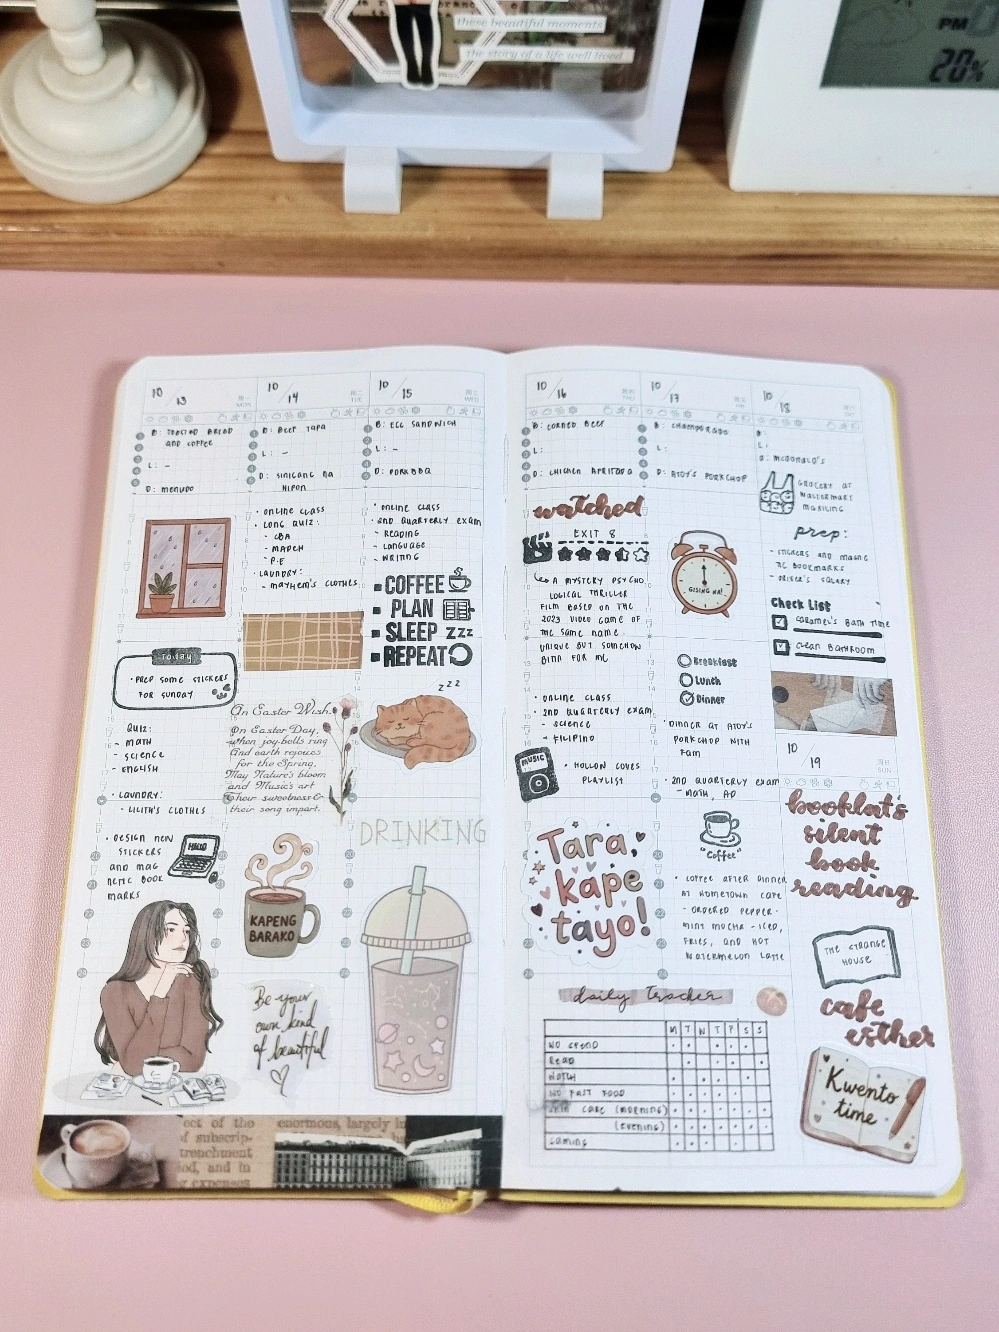 these beautiful moments
the story of a life well lived
PM
20%
10/13
MON
B: TOASTED BREAD
AND COFFEE
L: -
D: MENUDO
Today
• PREP SOME STICKERS
FOR SUNDAY
QUIZ:
- MATH
- SCIENCE
- ENGLISH
• LAUNDRY:
- LILITH'S CLOTHES
• DESIGN NEW
STICKERS
AND MAG
NETIC BOOK
MARKS
HELLO
10/14
TUE
B: BEEF TAPA
L: -
D: SINIGANG NA
HIPON
• ONLINE CLASS
• LONG QUIZ:
- CBA
- MAPEH
- P.E
• LAUNDRY:
- MAYHEM'S CLOTHES
An Easter Wish.
On Easter Day,
when joy-bells ring
And earth rejoices
for the Spring,
May Nature's bloom
and Music's art
Their sweetness &
their song impart.
KAPENG
BARAKO
Be your
own kind
of beautiful
10/15
WED
B: EGG SANDWICH
L: -
D: PORK BBQ
• ONLINE CLASS
• 2ND QUARTERLY EXAM
- READING
- LANGUAGE
- WRITING
COFFEE
PLAN
SLEEP ZZZ
REPEAT
z z z
DRINKING
ect of the
of subscrip-
trenchment
iod, and in
expenses
enormous, largely in
10/16
THU
B: CORNED BEEF
L:
D: CHICKEN AFRITADA
watched
EXIT 8
A MYSTERY PSYCHO
LOGICAL THRILLER
FILM BASED ON THE
2023 VIDEO GAME OF
THE SAME NAME.
UNIQUE BUT SOMEHOW
BITIN FOR ME
• ONLINE CLASS
• 2ND QUARTERLY EXAM
- SCIENCE
- FILIPINO
MUSIC
• HOLLOW COVES
PLAYLIST
Tara,
kape
tayo!
10/17
FRI
B: CHAMPORADO
L:
D: ATOY'S PORKCHOP
GISING NA!
Breakfast
Lunch
Dinner
• DINNER AT ATOY'S
PORKCHOP WITH
FAM
• 2ND QUARTERLY EXAM
- MATH, AP
"Coffee"
• COFFEE AFTER DINNER
AT HOMETOWN CAFE
- ORDERED PEPPER-
MINT MOCHA - ICED,
FRIES, AND HOT
WATERMELON LATTE
daily Tracker
M T W T F S S
NO SPEND
READ
WATCH
NO FAST FOOD
SKIN CARE (MORNING)
(EVENING)
GAMING
10/18
SAT
B:
L:
D: MCDONALD'S
GROCERY AT
WALTERMART
MAKILING
prep:
- STICKERS AND MAGNE
TIC BOOKMARKS
- DRIVER'S SALARY
Check List
CARAMEL'S BATH TIME
CLEAN BATHROOM
10/19
SUN
booklat's
silent
book
reading
THE STRANGE
HOUSE
cafe
esther
Kwento
time